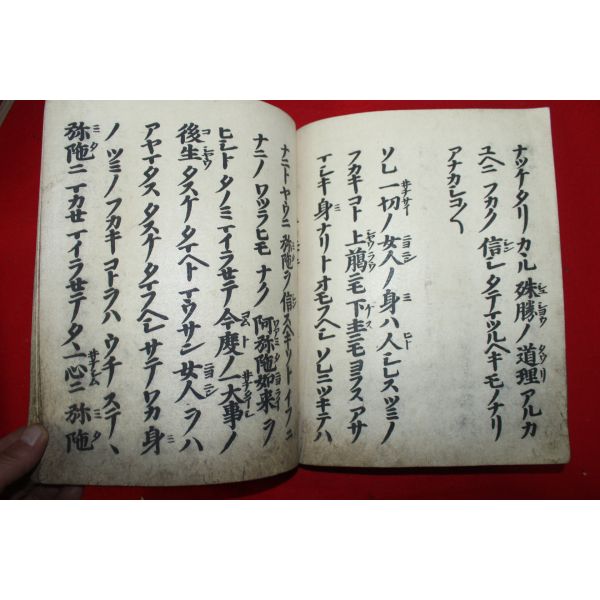 ナツケタリ カヽル 殊勝ノ 道理 アルカ
ユヘニ フカク 信シ タテマツルヘキ モノナリ
アナカシコ〱
ソレ 一切ノ 女人ノ 身ハ 人シレス ツミノ
フカキコト 上﨟ニモ 下主ニモ ヨラヌ アサ
マシキ 身ナリト オモフヘシ ソレニツキテハ
ナニト ヤウニ 弥陀ヲ 信スヘキソト イフニ
ナニノ ワツラヒモ ナク 阿弥陀如来ヲ
ヒシト タノミ マイラセテ 今度ノ 一大事ノ
後生 タスケ タマヘト マウサン 女人ヲハ
アヤマタス タスケ タマフヘシ サテ ワカ 身
ノ ツミノ フカキ コトヲハ ウチ ステヽ
弥陀ニ マカセ マイラセテ タヽ 一心ニ 弥陀